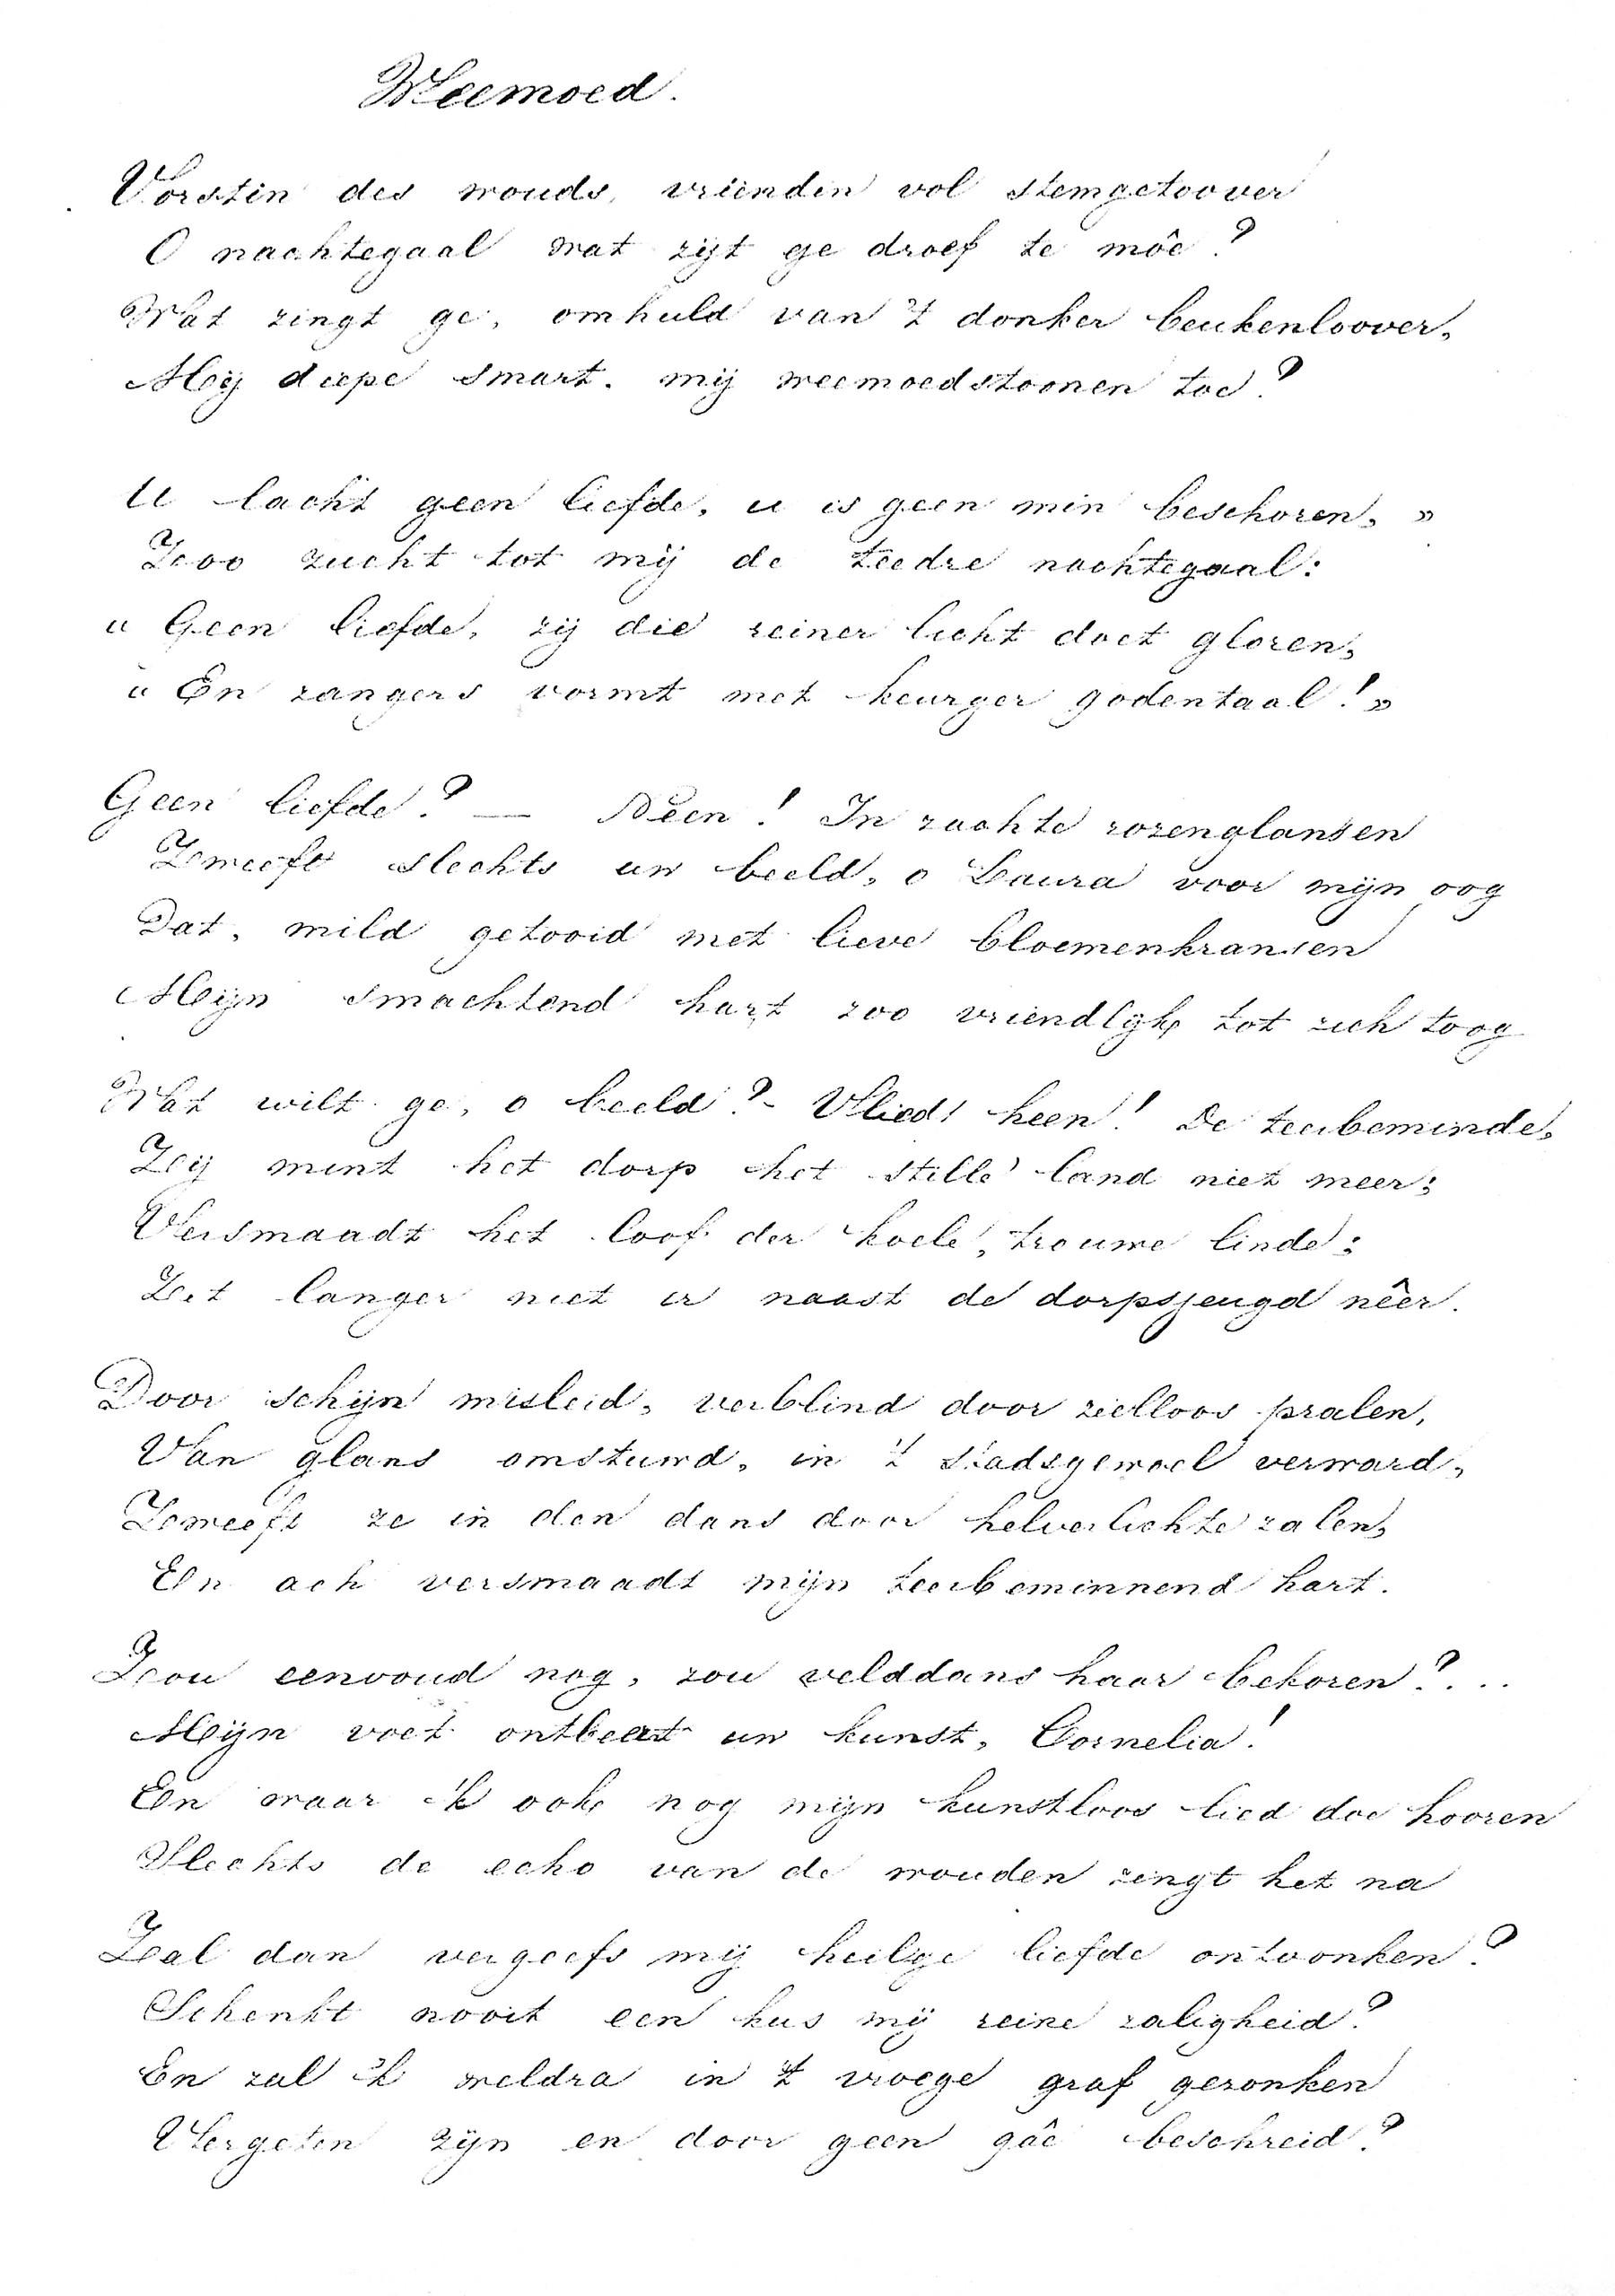 Weemoed.
Vorstin des wouds, vriendin vol stemgetoover
O nachtegaal wat zijt ge droef te môe?
Wat zingt ge, omhuld van 't donker beukenloover,
Mij diepe smart, mij weemoedstoonen toe?
U lacht geen liefde, u is geen min beschoren, »
Zoo zucht tot mij de teedre nachtegaal:
« Geen liefde, zij die reiner licht doet gloren,
« En zangers vormt met keurger godentaal! »
Geen liefde? — Neen! In zachte rozenglansen
Zweeft slechts uw beeld, o Laura voor mijn oog
Dat, mild getooid met lieve bloemenkransen
Mijn smachtend hart zoo vriendlijk tot zich toog
Wat wilt ge, o beeld? - Vlied heen! De teerbeminde,
Zij mint het dorp het stille land niet meer;
Versmaadt het loof der koele, trouwe linde;
Zit langer niet er naast de dorpsjeugd nêer.
Door schijn misleid, verblind door zielloos pralen,
Van glans omstuwd, in 't stadsgewoel verward,
Zweeft ze in den dans door helverlichte zalen,
En ach versmaadt mijn teerbeminnend hart.
Zou eenvoud nog, zou velddans haar bekoren?...
Mijn voet ontbeert uw kunst, Cornelia!
En waar ik ook nog mijn kunstloos lied doe hooren
Slechts de echo van de wouden zingt het na
Zal dan vergeefs mij heilge liefde ontvonken?
Schenkt nooit een kus mij reine zaligheid?
En zal ik weldra in 't vroege graf gezonken
Vergeten zijn en door geen gâe beschreid?